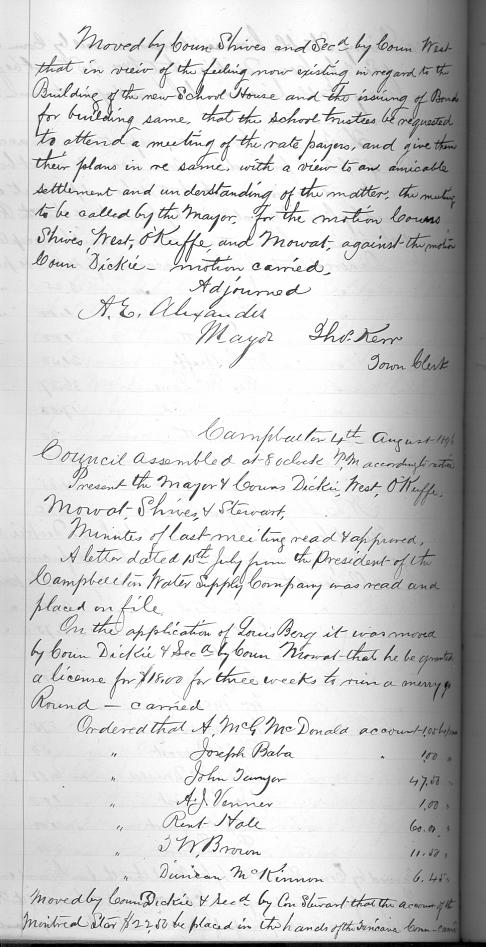 Moved by Coun Shives and Secd by Coun West
that in view of the feeling now existing in regard to the
Building of the new School House and the issuing of Bonds
for building same, that the School trustees be requested
to attend a meeting of the rate payers, and give them
their plans in re same, with a view to an amicable
settlement and understanding of the matter, the meeting
to be called by the Mayor, For the motion Couns
Shives, West, O'Keeffe, and Mowat, against the motion
Coun Dickie — motion carried.
Adjourned
A. E. Alexander
Mayor Thos. Kerr
Town Clerk
Campbellton 4th August
Council assembled at 8 oclock P.M according to notice
Present the Mayor & Couns Dickie, West, O'Keeffe,
Mowat Shives, & Stewart,
Minutes of last meeting read & approved,
A letter dated 15th July from the President of the
Campbellton Water Supply Company was read and
placed on file
On the application of Louis Berg it was moved
by Coun Dickie & Secd by Coun Mowat that he be granted
a license for $18.00 for three weeks to run a merry go
Round — carried
Ordered that A. McG McDonald account 1,00 be paid
" Joseph Baba " 1,00 "
" John 47.50 "
" A. J. Venner 1,00 "
" Rent Hall 60.00 "
" T W. Brown 11.50 "
" Duncan McKinnon 6.45 "
Moved by Coun Dickie & Secd by Con Stewart that the account of the
Montreal Star $22,50 be placed in the hands of the Finance Com — carried